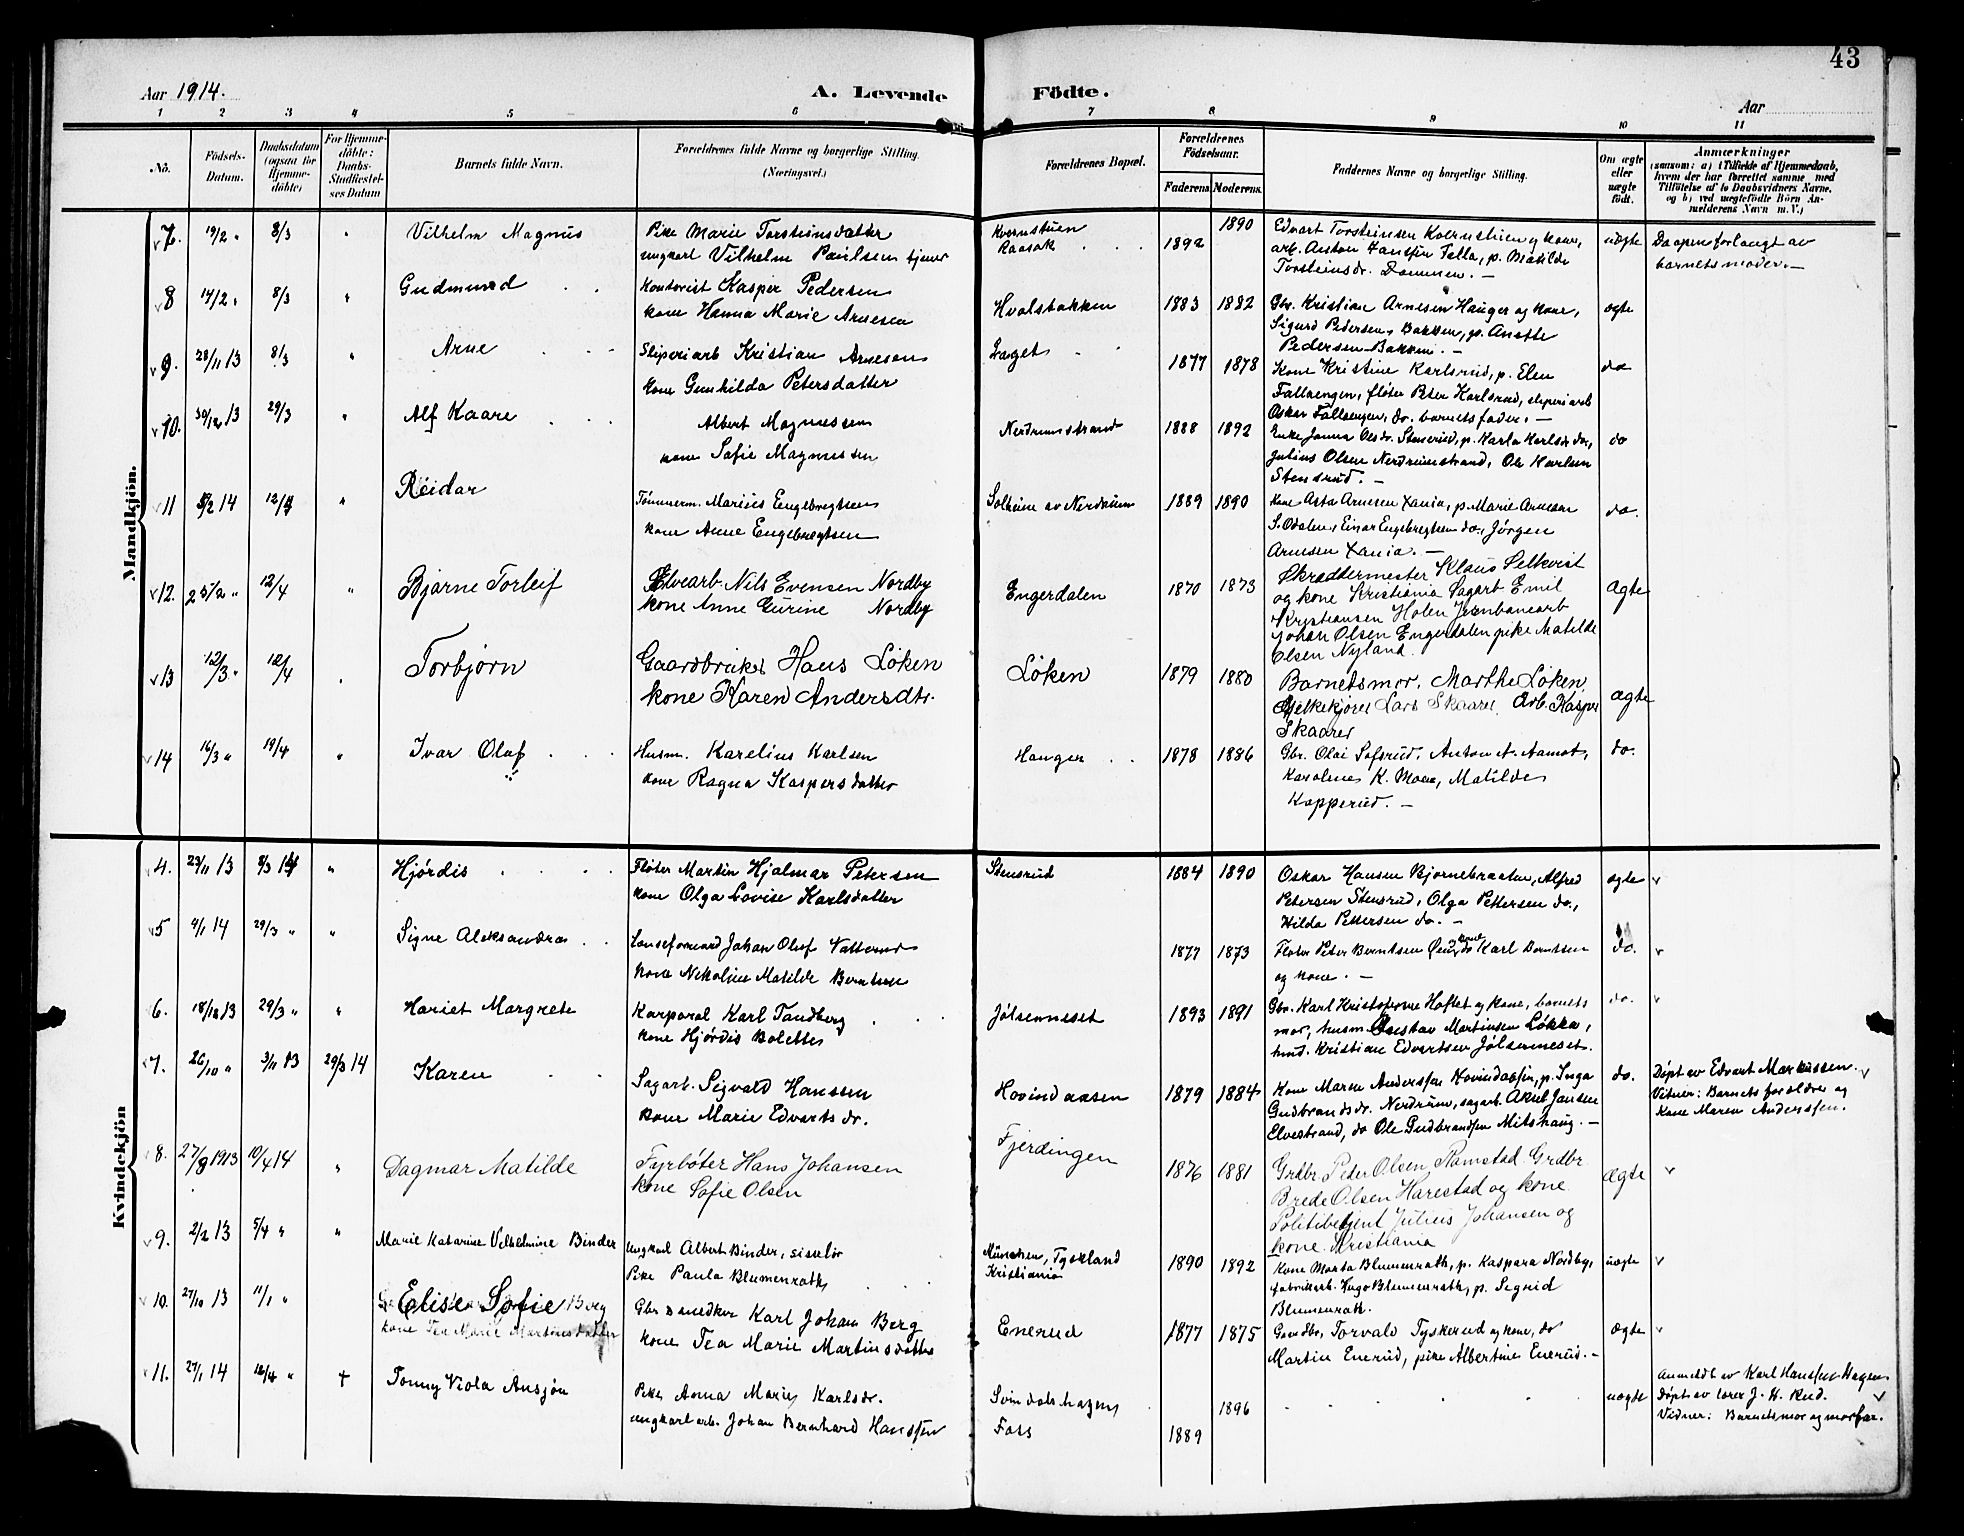 43
Aar 1914. A. Levende Födte. Aar
1 2 3 4 5 6 7 8 9 10 11
No. Födsels-Datum. Daabsdatum (ogsaa for Hjemmedöbte) For Hjemmedöbte: Daabs-Stadfæstelses Datum Barnets fulde Navn. Forældrenes fulde Navne og borgerlige Stilling. (Næringsvei.) Forældrenes Bopæl. Forældrenes Födselsaar. Faderens Moderens. Faddernes Navne og borgerlige Stilling. Om ægte eller uægte födt. Anmærkninger (saasom: a) i Tilfælde af Hjemmedaab, hvem der har forrettet samme med Tilföielse af to Daabsvidners Navne, og b) ved uægtefödte Börn Anmelderens Navn m. V.)
Mandkjön.
7. 19/2 " 8/3 " Vilhelm Magnus Pike Marie Torsteinsdatter Kvernstuen 1890 Edvart Torsteinsen Kvernstuen og kone, uægte Daapen forlangt av
ungkarl Vilhelm Paulsen tjener Raasok 1892 arb. Anton Hanssen Fella, p. Matilde barnets moder. —
Torsteinsdr. Dammen. —
8 14/2 " 8/3 " Gudmund Kontorist Kasper Pedersen Hvalsbakken 1883 1882 Gbr. Kristian Arnesen Hauger og kone, ægte
kone Hanna Marie Arnesen Sigurd Pedersen, Bakken, p. Anette
Pedersen Bakken. —
9. 28/11 13 8/3 " Arne Sliperiarb Kristian Arnesen Haget 1877 1878 Kone Kristine Karlsrud, p. Elen do
kone Gunhilda Petersdatter Fallaengen, fløter Peter Karlsrud, sliperiarb
Oskar Fallaengen, do. barnets fader. —
10. 30/12 13 29/3 " Alf Kaare Albert Magnussen Nerdrumstrand 1888 1892 Enke Janna Olsdr. Stensrud, p. Karla Karlsdr do, do
kone Sofie Magnussen Julius Olsen Nerdrumstrand, Ole Karlsen
Stensrud. —
11 8/2 14 12/4 " Reidar Tømmerm. Marius Engebregtsen Solheim av Nerdrum 1889 1890 Kone Asta Arnesen Xania, p. Marie Arnesen do.
kone Anne Engebregtsen S. Odalen, Einar Engebregtsen do., Jørgen
Arnesen Xania. —
12. 25/2 " 12/4 " Bjarne Torleif Elvearb. Nils Evensen Nordby Engerdalen 1870 1873 Skræddermester Klaus Selkvist Ægte
kone Anne Gurine Nordby og kone Kristiania Sagarb Emil
Kristiansen Holen Jernbanearb
Johan Olsen Engerdalen pike Matilde
Olsen Nyland.
13 12/3 " 12/4 " Torbjørn Gaardbruker Hans Løken Løken 1879 1880 Barnets mor. Marthe Løken, ægte
kone Karen Andersdtr. Melkekjører Lars Skaarer. Arb. Kasper
Skaarer
14 16/3 " 19/4 " Ivar Olaf Husm. Karelius Karlsen Hauger 1878 1886 Gbr. Olai Sofsrud, Anton A. Aamot, do.
kone Ragna Kaspersdatter Karoline K. Moen, Matilde
Kopperud. —
Kvindekjön
4. 23/11 13 8/3 14 " Hjørdis Fløter Martin Hjalmar Petersen Stensrud 1884 1890 Oskar Hansen Bjørnebraaten, Alfred ægte
kone Olga Lovise Karlsdatter Petersen Stensrud, Olga Pettersen do.,
Hilda Pettersen do. —
5 4/1 14 29/3 " " Signe Aleksandra Lanseformand Johan Oluf 1877 1873 Fløter Peter Berntsen Øien, do Karl Berntsen do.
kone Nikoline Matilde Berntsen og kone. —
6. 18/12 13 29/3 " " Hariet Margrete Korporal Karl Tandberg Jølsenneset 1893 1891 Gbr. Karl Kristoferne Hoftet og kone, barnets do.
kone Hjørdis Bolette mor, husm Gustav Martinsen Løkka,
husd. Kristian Edvartsen Jølsenneset.
7. 26/10 " 3/11 13 29/3 14 Karen Sagarb. Sigvald Hanssen Hovindaasen 1879 1884 Kone Maren Anderssen Hovindaasen, p. Inga do. Døpt av Edvart Markussen.
kone Marie Edvartsdr. Gudbrandsdr. Nerdrum, sagarb. Aksel Jansen Vitner: Barnets forældre og
Elvestrand, do Ole Gudbrandsen Mitshaug. — Kone Maren Anderssen.
8. 27/8 1913 10/4 14 " Dagmar Matilde Fyrbøter Hans Johansen Fjerdingen 1876 1881 Grdbr. Peter Olsen Ramstad. Grdbr Ægte
kone Sofie Olsen Brede Olsen Harestad og kone
Politibetjent Julius Johansen og
kone. Kristiania
9. 2/2 13 5/4 " " Marie Katarine Vilhelmine Binder Ungkarl Albert Binder, siselør München, Tyskland 1890 1892 Kone Marta Blumenrath, p. Kaspara Nordby, uægte
Pike Paula Blumenrath Kristiania fabrikarb. Hugo Blumenrath, p. Segrid
Blumenrath.
10. 27/10 13 11/1 " Elise Sofie Berg Gbr snedker Karl Johan Berg Enerud 1877 1875 Gaardbr. Torvald Tyskerud og kone, do ægte
kone Tea Marie Martinsdatter kone Tea Marie Martinsdatter Martin Enerud, pike Albertine Enerud. —
11. 27/1 14 12/4 " + Tonny Viola Ansjøn Pike Anna Marie Karlsdr. Svindalshagen 1896 uægte Anmeldt av Karl Hanssen Hagen
ungkarl arb. Johan Bernhard Hanssen Foss 1889 Døpt av lærer J. H. Rud.
Vidner: Barnets mor og morfar.